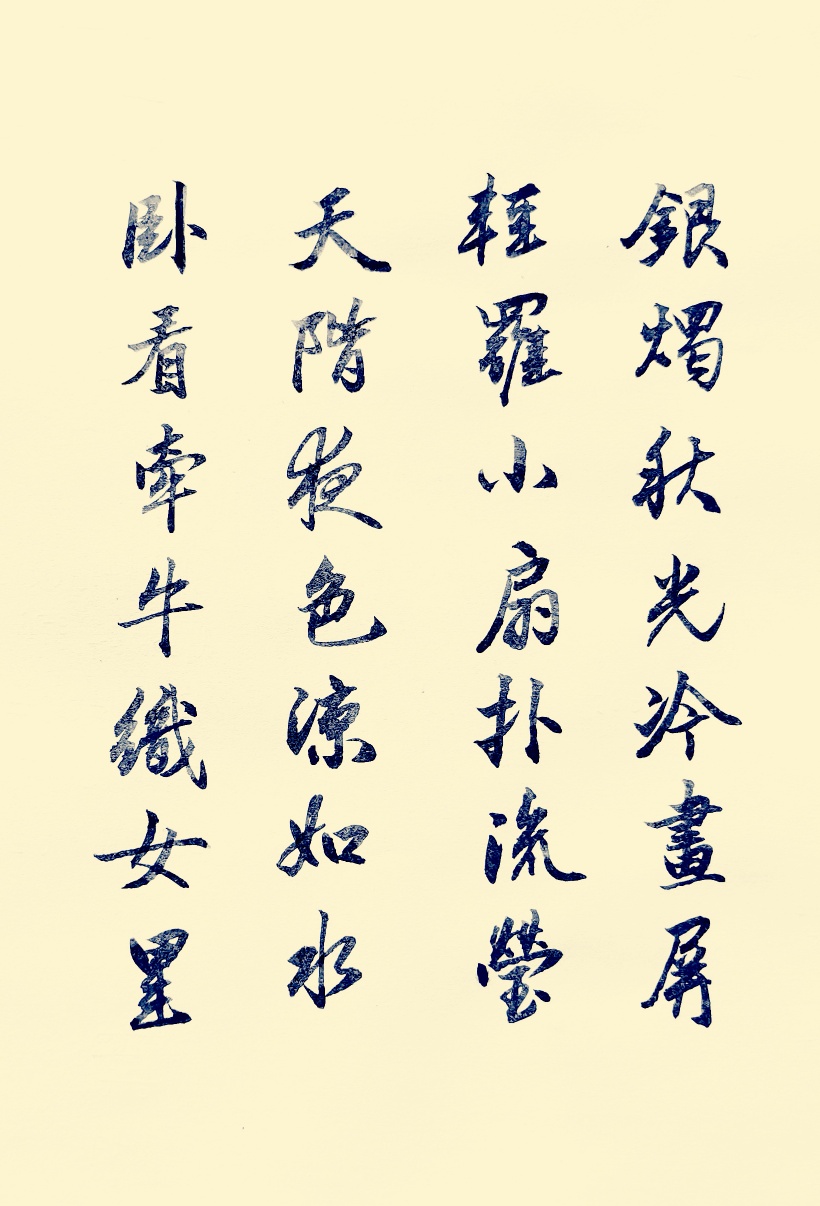 銀燭秋光冷畫屏
輕羅小扇扑流螢
天階夜色涼如水
卧看牽牛織女星